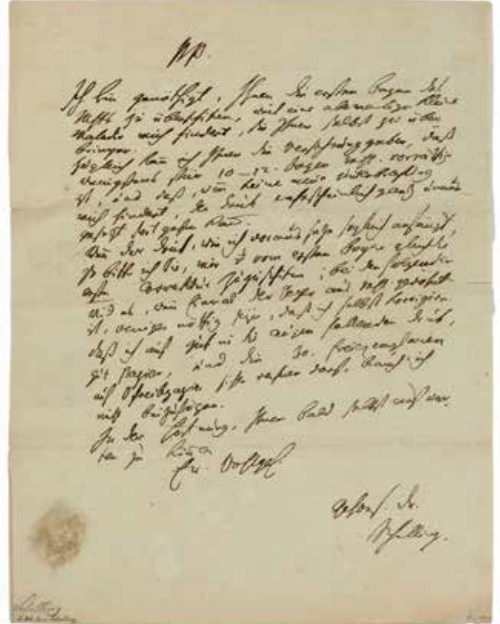 PP.
Ich bin genöthigt, Ihnen die ersten Bogen des
Msts. zu überschicken, weil eine abermalige kleine
Maladie mich hindert, sie Ihnen selbst zu über-
bringen.
Zugleich kann ich Ihnen die Versicherung geben, daß
wenigstens für 10-12. Bogen Mst. vorräthig
ist, und daß, wenn keine neue
mich hindert, der Druck
fort gehen kann.
Wenn der Druck, wie ich voraus setze sogleich anfängt,
so bitte ich Sie, mir vom ersten Bogen
erste Correktur zuzuschicken; bei den folgenden
wird es, wenn der Setzer ans Mst. gewöhnt
ist, weniger nöthig seyn, daß ich selbst korrigire
daß ich auf in die Augen fallenden Druck,
gut Papier, und die 30. Freiexemplare
auf Schreibpapier rechnen darf, brauch ich
nicht beizufügen.
In der Hoffnung, Ihnen bald selbst aufwar-
ten zu können
Ew. Wohlgeb.
Dr.
Schelling.